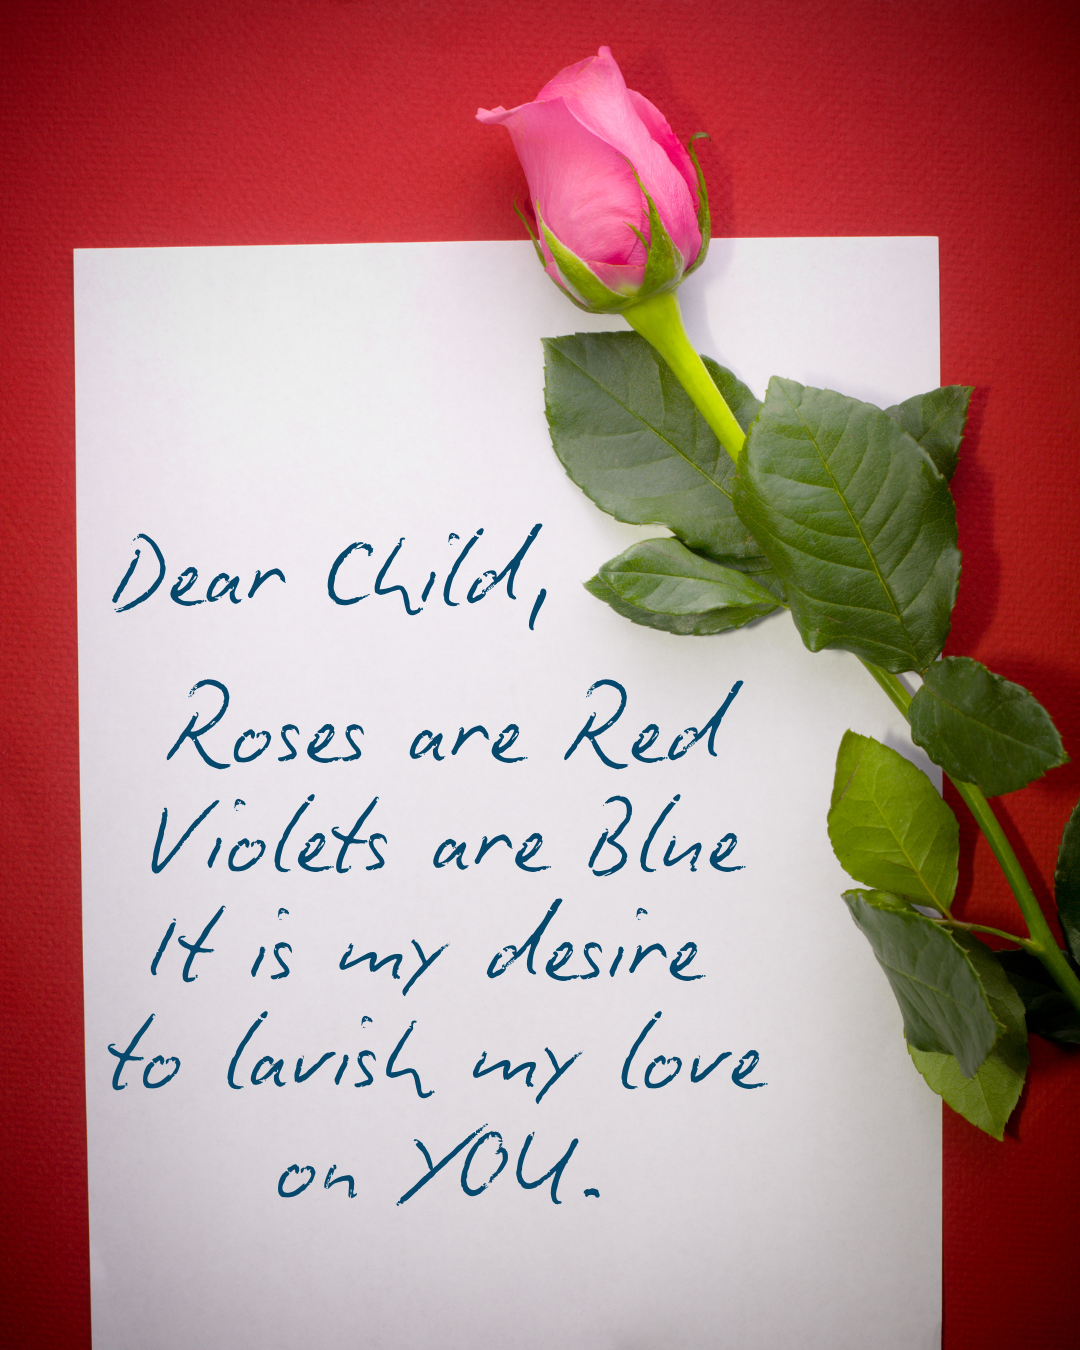 Dear Child,
Roses are Red
Violets are Blue
It is my desire
to lavish my love
on YOU.